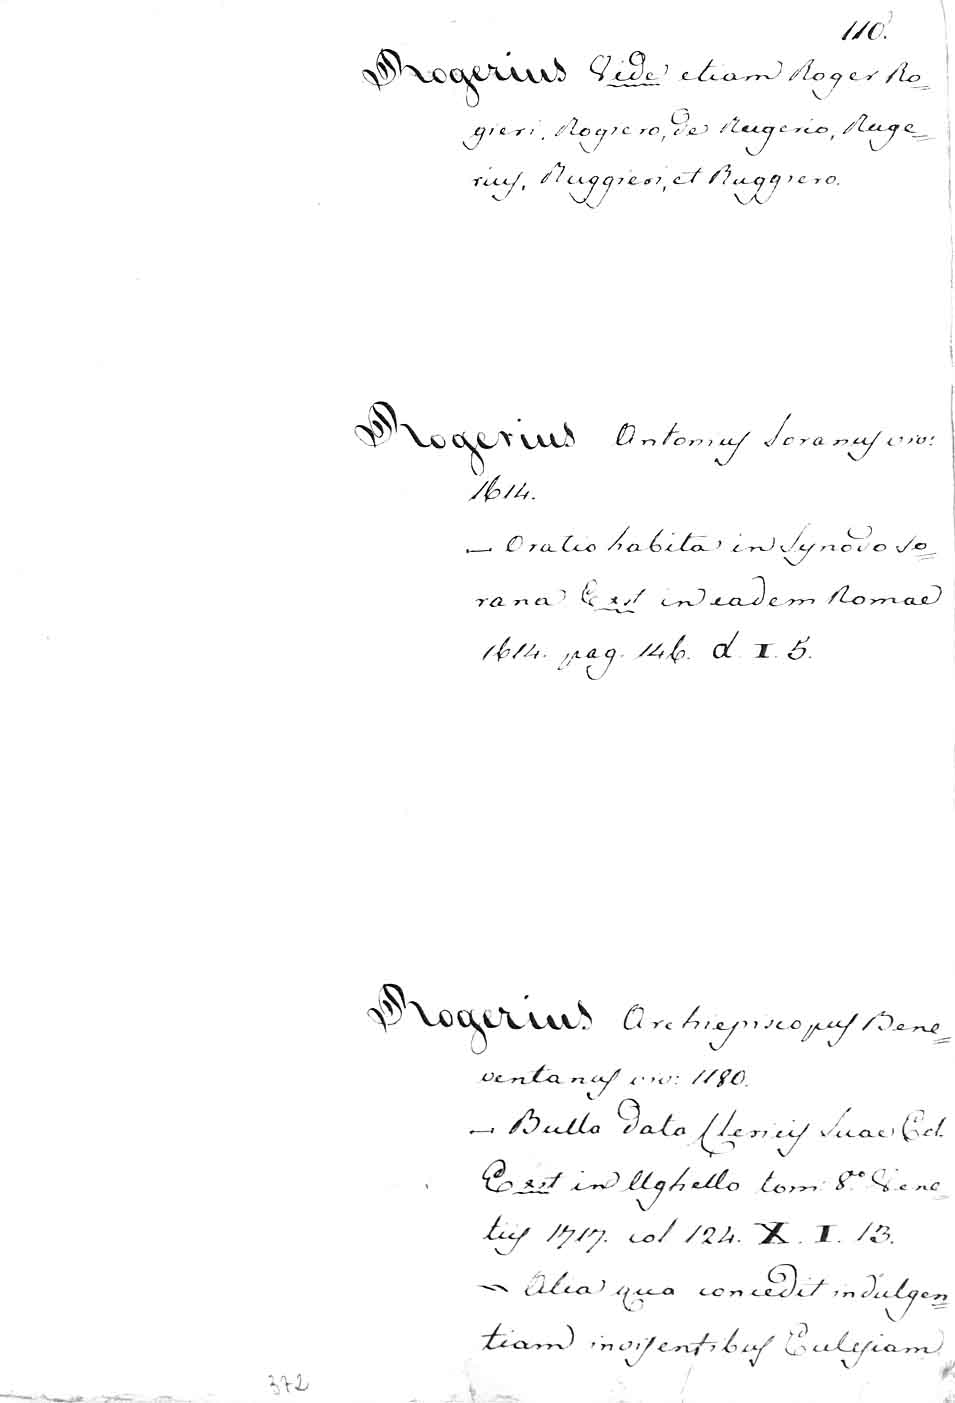 110.
Rogerius Vide etiam Roger Ro=
gieri, Rogiero, de Rugerio, Ruge=
rius, Ruggieri, et Ruggiero.
Rogerius Antonius Soranus viv:
1614.
— Oratio habita in Synodo So=
rana Exst in eadem Romae
1614. pag. 146. d. I. 5.
Rogerius Archiepiscopus Bene=
ventanus viv: 1180.
— Bulla data Clericis Suae Ecl.
Exst in Ughello tom: 8.º Vene=
tiis 1717. col 124. X. I. 13.
— Alia qua concedit indulgen=
tiam invisentibus Eclesiam
372